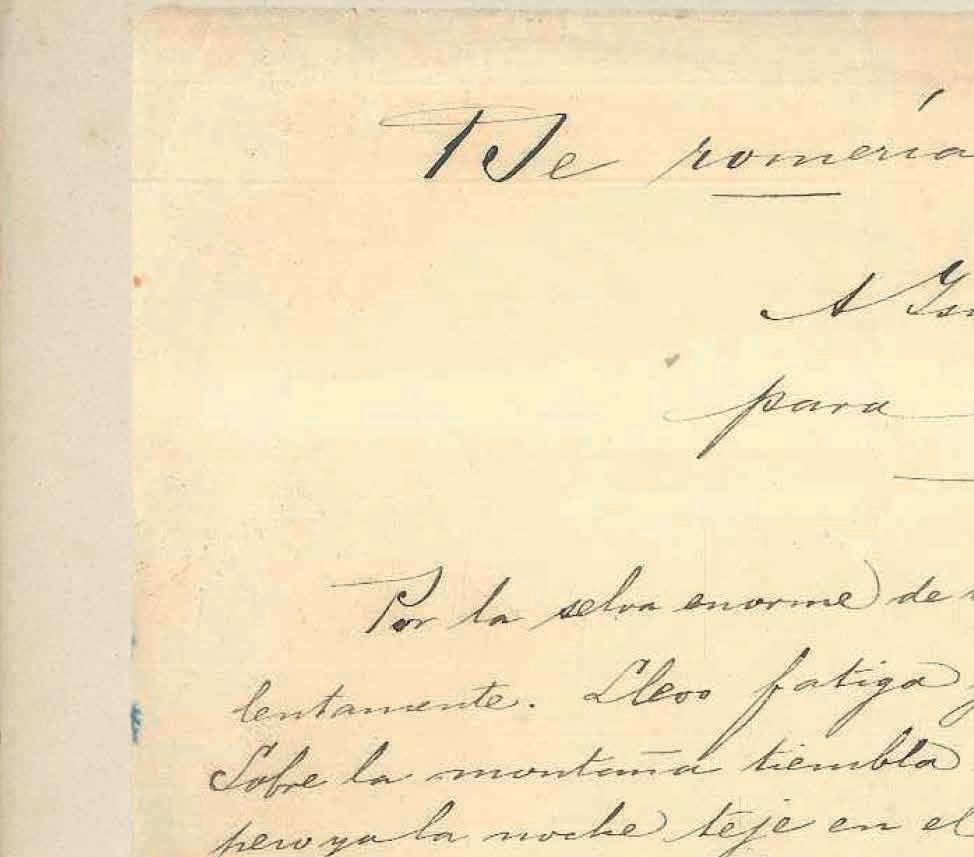 De romería
A
para
Por la selva enorme de
lentamente. Llevo fatiga
Sobre la montaña tiembla
pero ya la noche teje en el